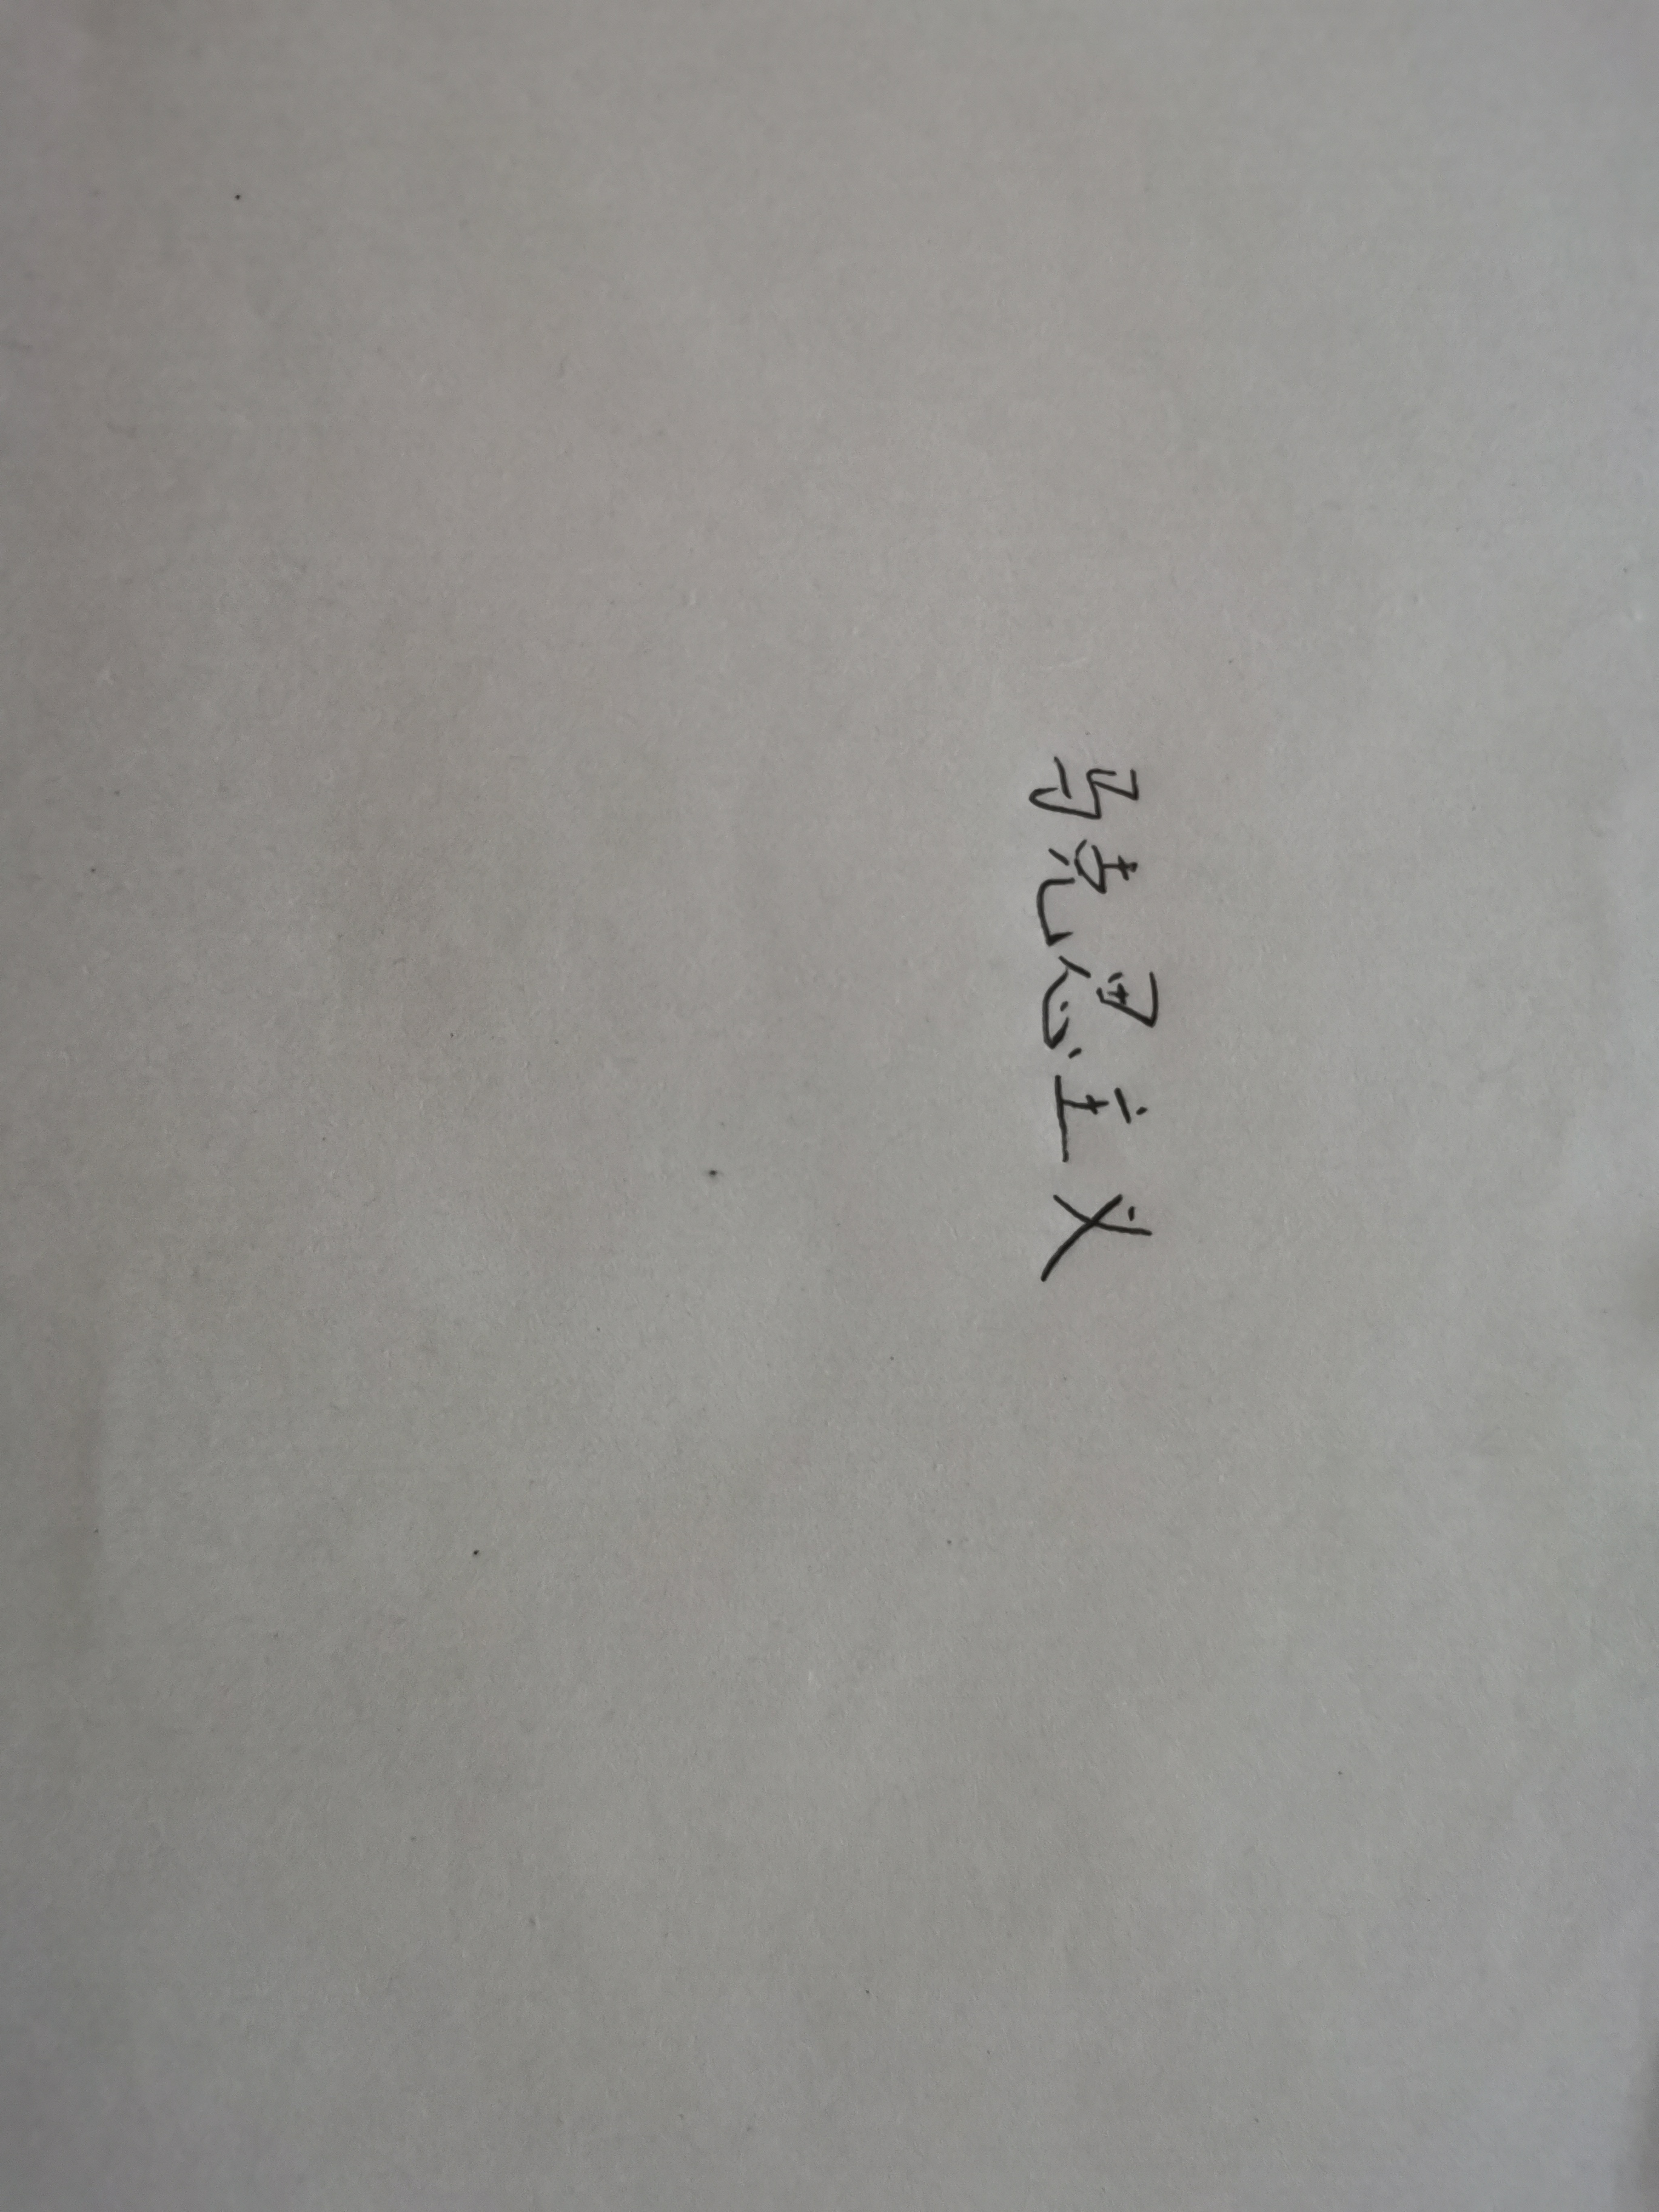 马克思主义